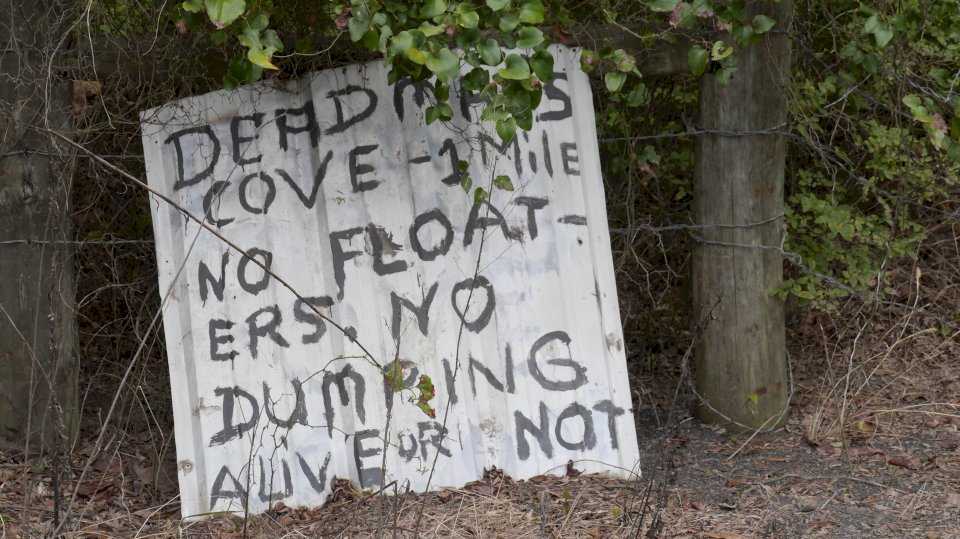 DEAD MANS
COVE - 1 Mile
NO FLOAT-
ERS, NO
DUMPING
ALIVE OR NOT